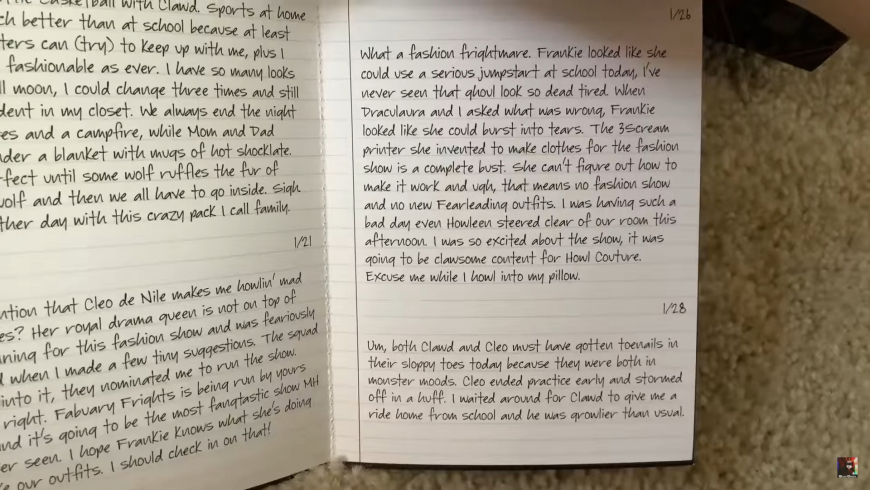 Basketball with Clawd. Sports at home
ch better than at school because at least
ters can (try) to keep up with me, plus I
fashionable as ever. I have so many looks
ll moon, I could change three times and still
dent in my closet. We always end the night
es and a campfire, while Mom and Dad
der a blanket with mugs of hot shocklate.
fect until some wolf ruffles the fur of
wolf and then we all have to go inside. Sigh
ther day with this crazy pack I call family.
1/21
ntion that Cleo de Nile makes me howlin' mad
es? Her royal drama queen is not on top of
ning for this fashion show and was feariously
d when I made a few tiny suggestions. The squad
into it, they nominated me to run the show.
right. Fabuary Frights is being run by yours
and it's going to be the most fangtastic show MH
er seen. I hope Frankie knows what she's doing
e our outfits. I should check in on that!
1/26
What a fashion frightmare. Frankie looked like she
could use a serious jumpstart at school today, I've
never seen that ghoul look so dead tired. When
Draculaura and I asked what was wrong, Frankie
looked like she could burst into tears. The 3Scream
printer she invented to make clothes for the fashion
show is a complete bust. She can't figure out how to
make it work and ugh, that means no fashion show
and no new Fearleading outfits. I was having such a
bad day even Howleen steered clear of our room this
afternoon. I was so excited about the show, it was
going to be clawsome content for Howl Couture.
Excuse me while I howl into my pillow.
1/28
Um, both Clawd and Cleo must have gotten toenails in
their sloppy toes today because they were both in
monster moods. Cleo ended practice early and stormed
off in a huff. I waited around for Clawd to give me a
ride home from school and he was growlier than usual.